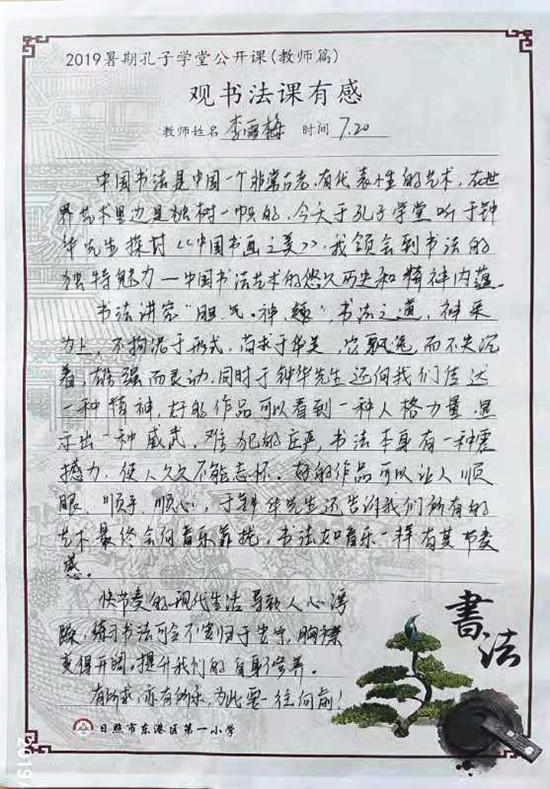 2019暑期孔子学堂公开课(教师篇)
观书法课有感
教师姓名 李雪梅 时间 7.20
中国书法是中国一个非常古老,有代表性的艺术,在世
界艺术里边是独树一帜的,今天于孔子学堂听于钟
华先生探讨《中国书画之美》,我领会到书法的
独特魅力—中国书法艺术的悠久历史和精神内蕴。
书法讲究"胆、气、神、趣",书法之道,神采
为上,不拘泥于形式,而不失沉
着,雄强而灵动,同时于钟华先生还向我们传达
一种精神,好的作品可以看到一种人格力量,显
示出一种威武,难犯的庄严,书法本身有一种震
撼力,使人久久不能忘怀。好的作品可以让人顺
眼、顺手、顺心,于钟华先生还告诉我们所有的
艺术最终会向音乐靠拢,书法如音乐一样有其节奏
感。
快节奏的现代生活导致人心浮
躁,练习书法可令不安归于安宁,胸襟
变得开阔,提升我们的自身修养。
有所求,亦有所求,为此要一往向前!
日照市东港区第一小学
書法
2019/